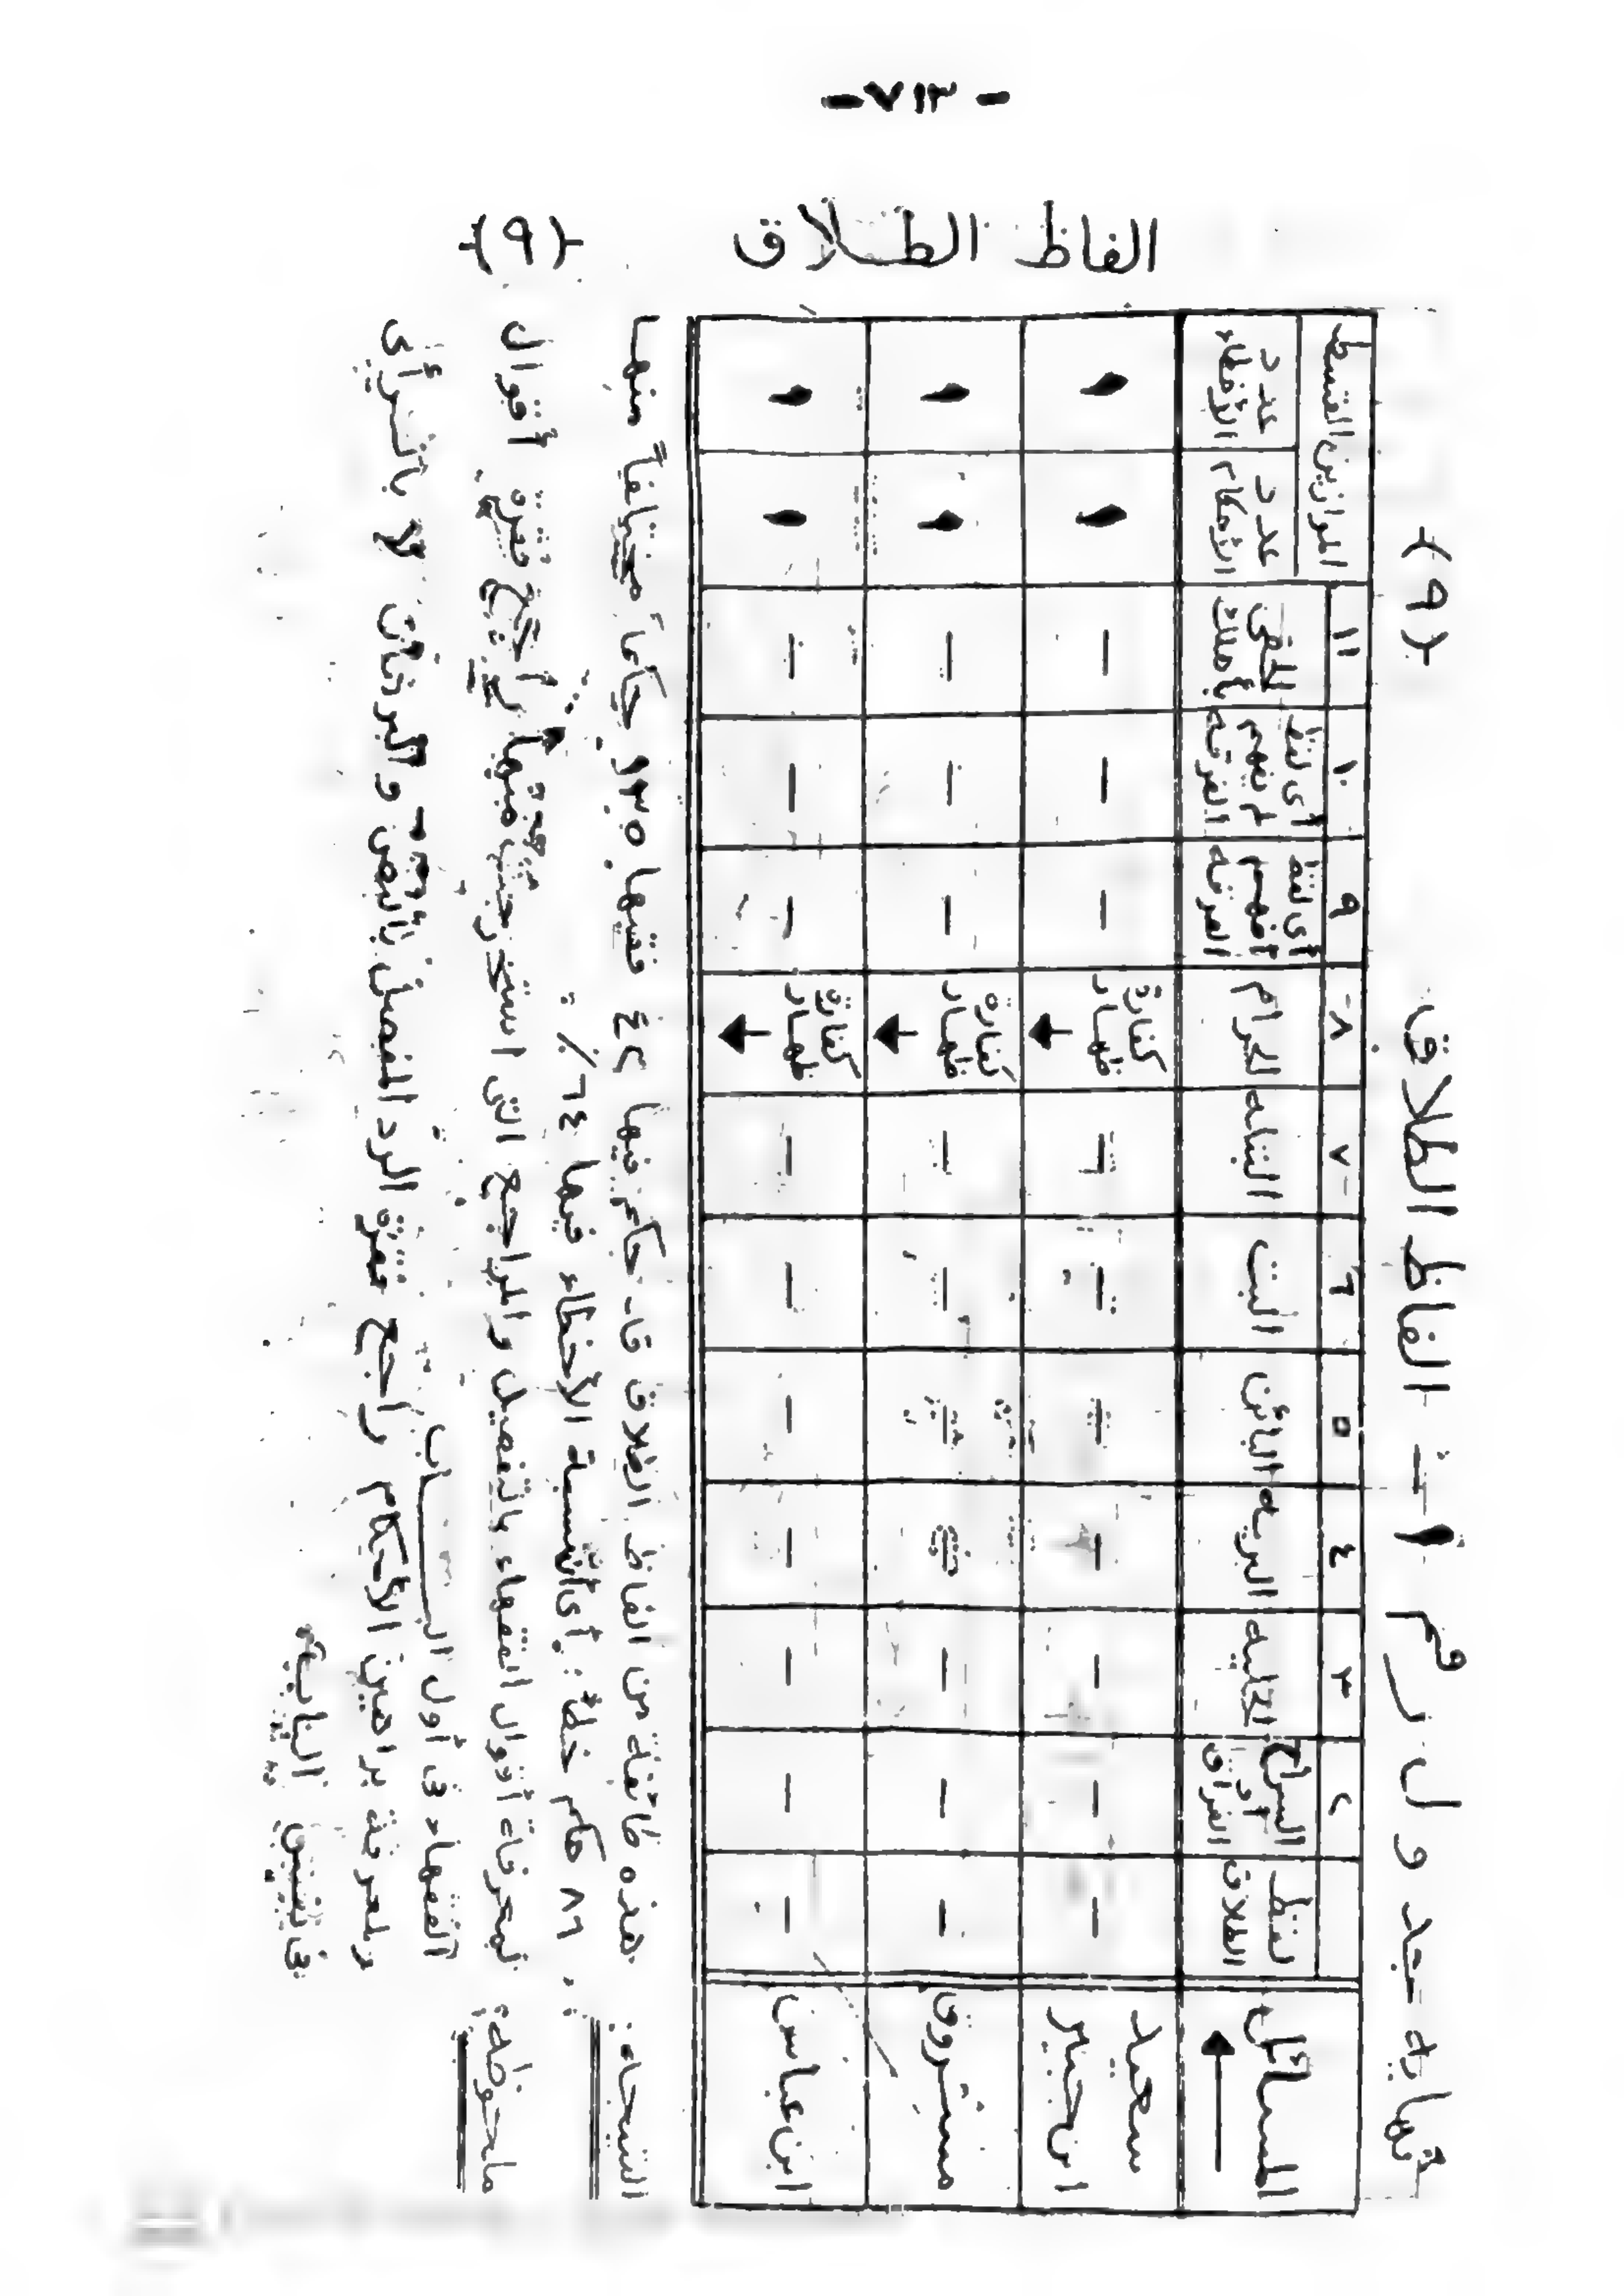 - ٧١٣ -
الفاظ الطلاق {٩}
نهاية جدول رقم ١- الفاظ الطلاق {٩}
المسائل
لفظ الطلاق
٢ السراح أو الفراق
٣ الخليه
٤ البريه
٥ البائن
٦ البت
٧ البتله
٨ الحرام
٩ أى لفظ أفهم الفرقه
١٠ أى لفظ لم يفهم الفرقه
١١ الحقى بأهلك
الموازين القسط
عدد الأحكام
عدد الأخطاء
سعيد ابن جبير - - - - - - - كفارة ظهار - - - ٠ ٠
مسروق - - - - - - - كفارة ظهار - - - ٠ ٠
ابن عباس - - - - - - - كفارة ظهار - - - ٠ ٠
النتيجه: هذه طائفة من الفاظ الطلاق قد حكم فيها ٤٢ فقيها ١٣٥ حكماً مختلفاً منها
٨٦ حكم خطأ. أى نسبة الأخطاء فيها ٦٤ ٪
ملحوظه: لمعرفة أقوال الفقهاء بالتفصيل والمراجع التى استخرجت منها راجع فقرة أقوال
الفقهاء فى أول البـاب
ولمعرفة براهين الأحكام راجع فقرة الرد المفصل بالنص والبرهان لا بالرأى
فى نفس الباب